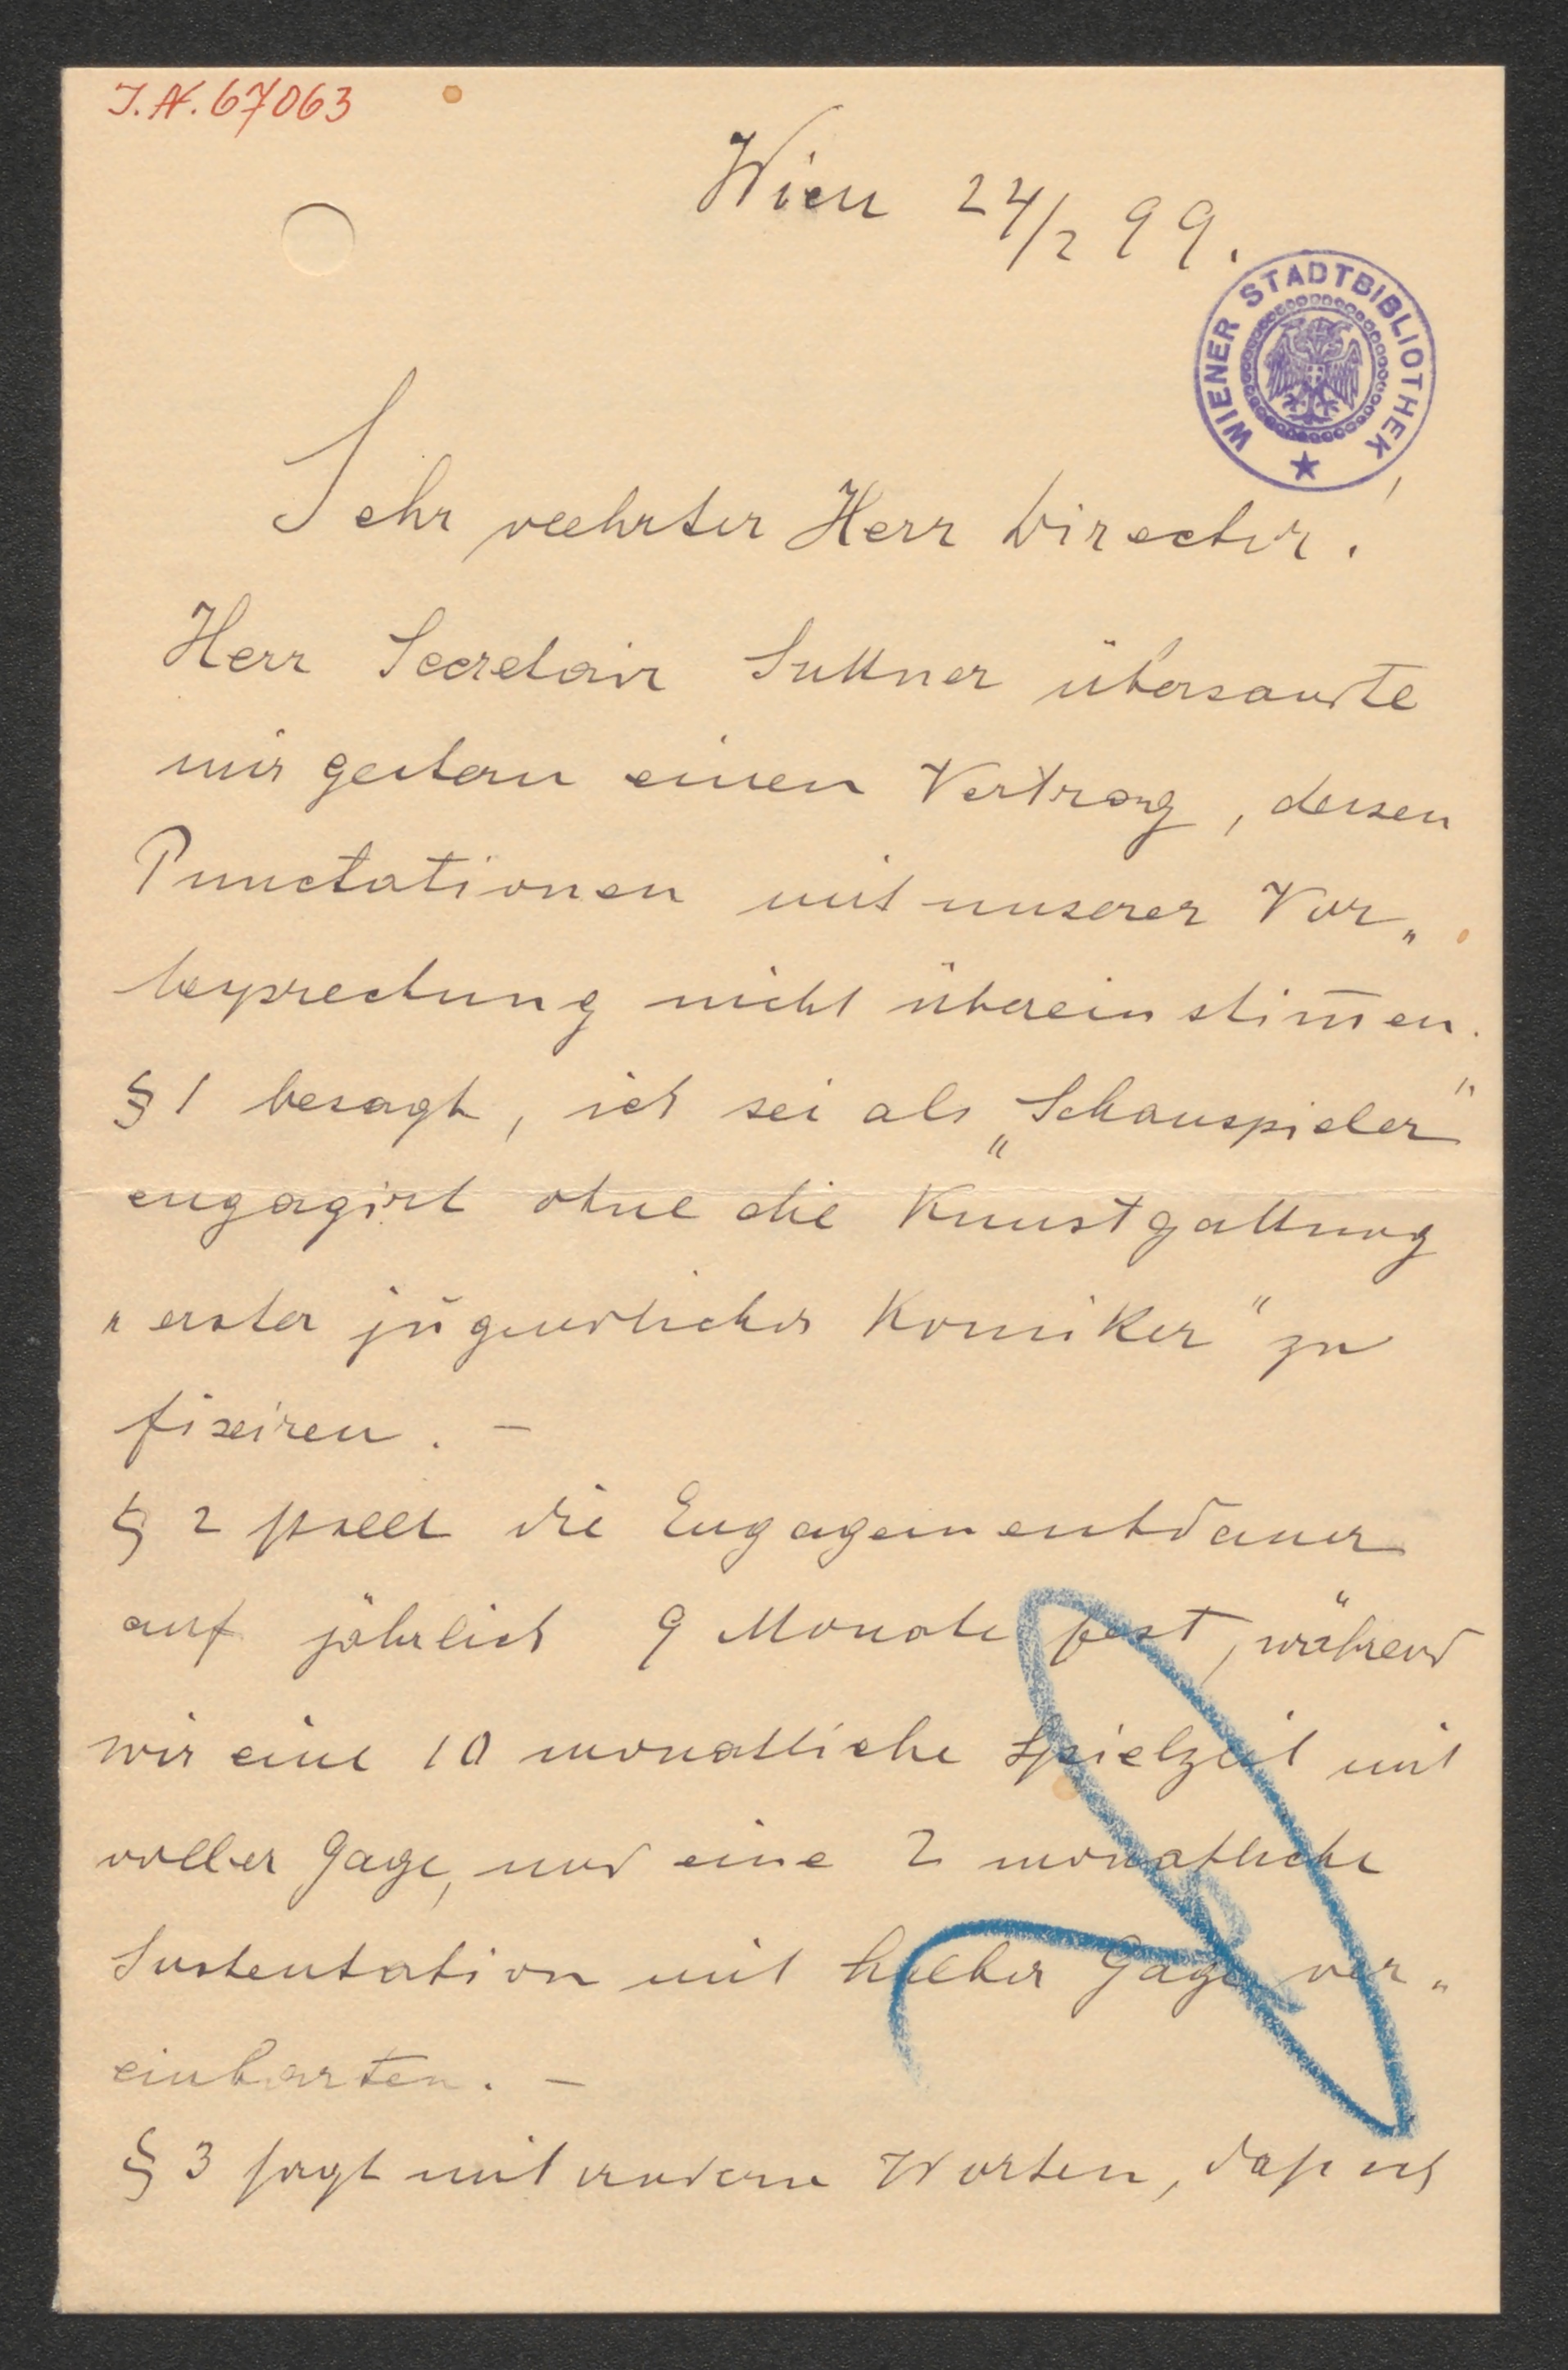 J.N. 67063
Wien 24/2 99.
WIENER STADTBIBLIOTHEK
Sehr verehrter Herr Director!
Herr Secretair Suttner übersandte
mir gestern einen Vertrag, dessen
Punctationen mit unserer Vor„
besprechung nicht übereinstim̄en.
§ 1 besagt, ich sei als „Schauspieler"
engagirt ohne die Kunstgattung
"erster jugendlicher Komiker" zu
fixiren. –
§ 2 stellt die Engagementdauer
auf jährlich 9 Monate fest, während
wir eine 10 monatliche Spielzeit mit
voller Gage, und eine 2 monatliche
Sustentation mit halber Gage ver„
einbarten. –
§ 3 sagt mit andern Worten, daß ich